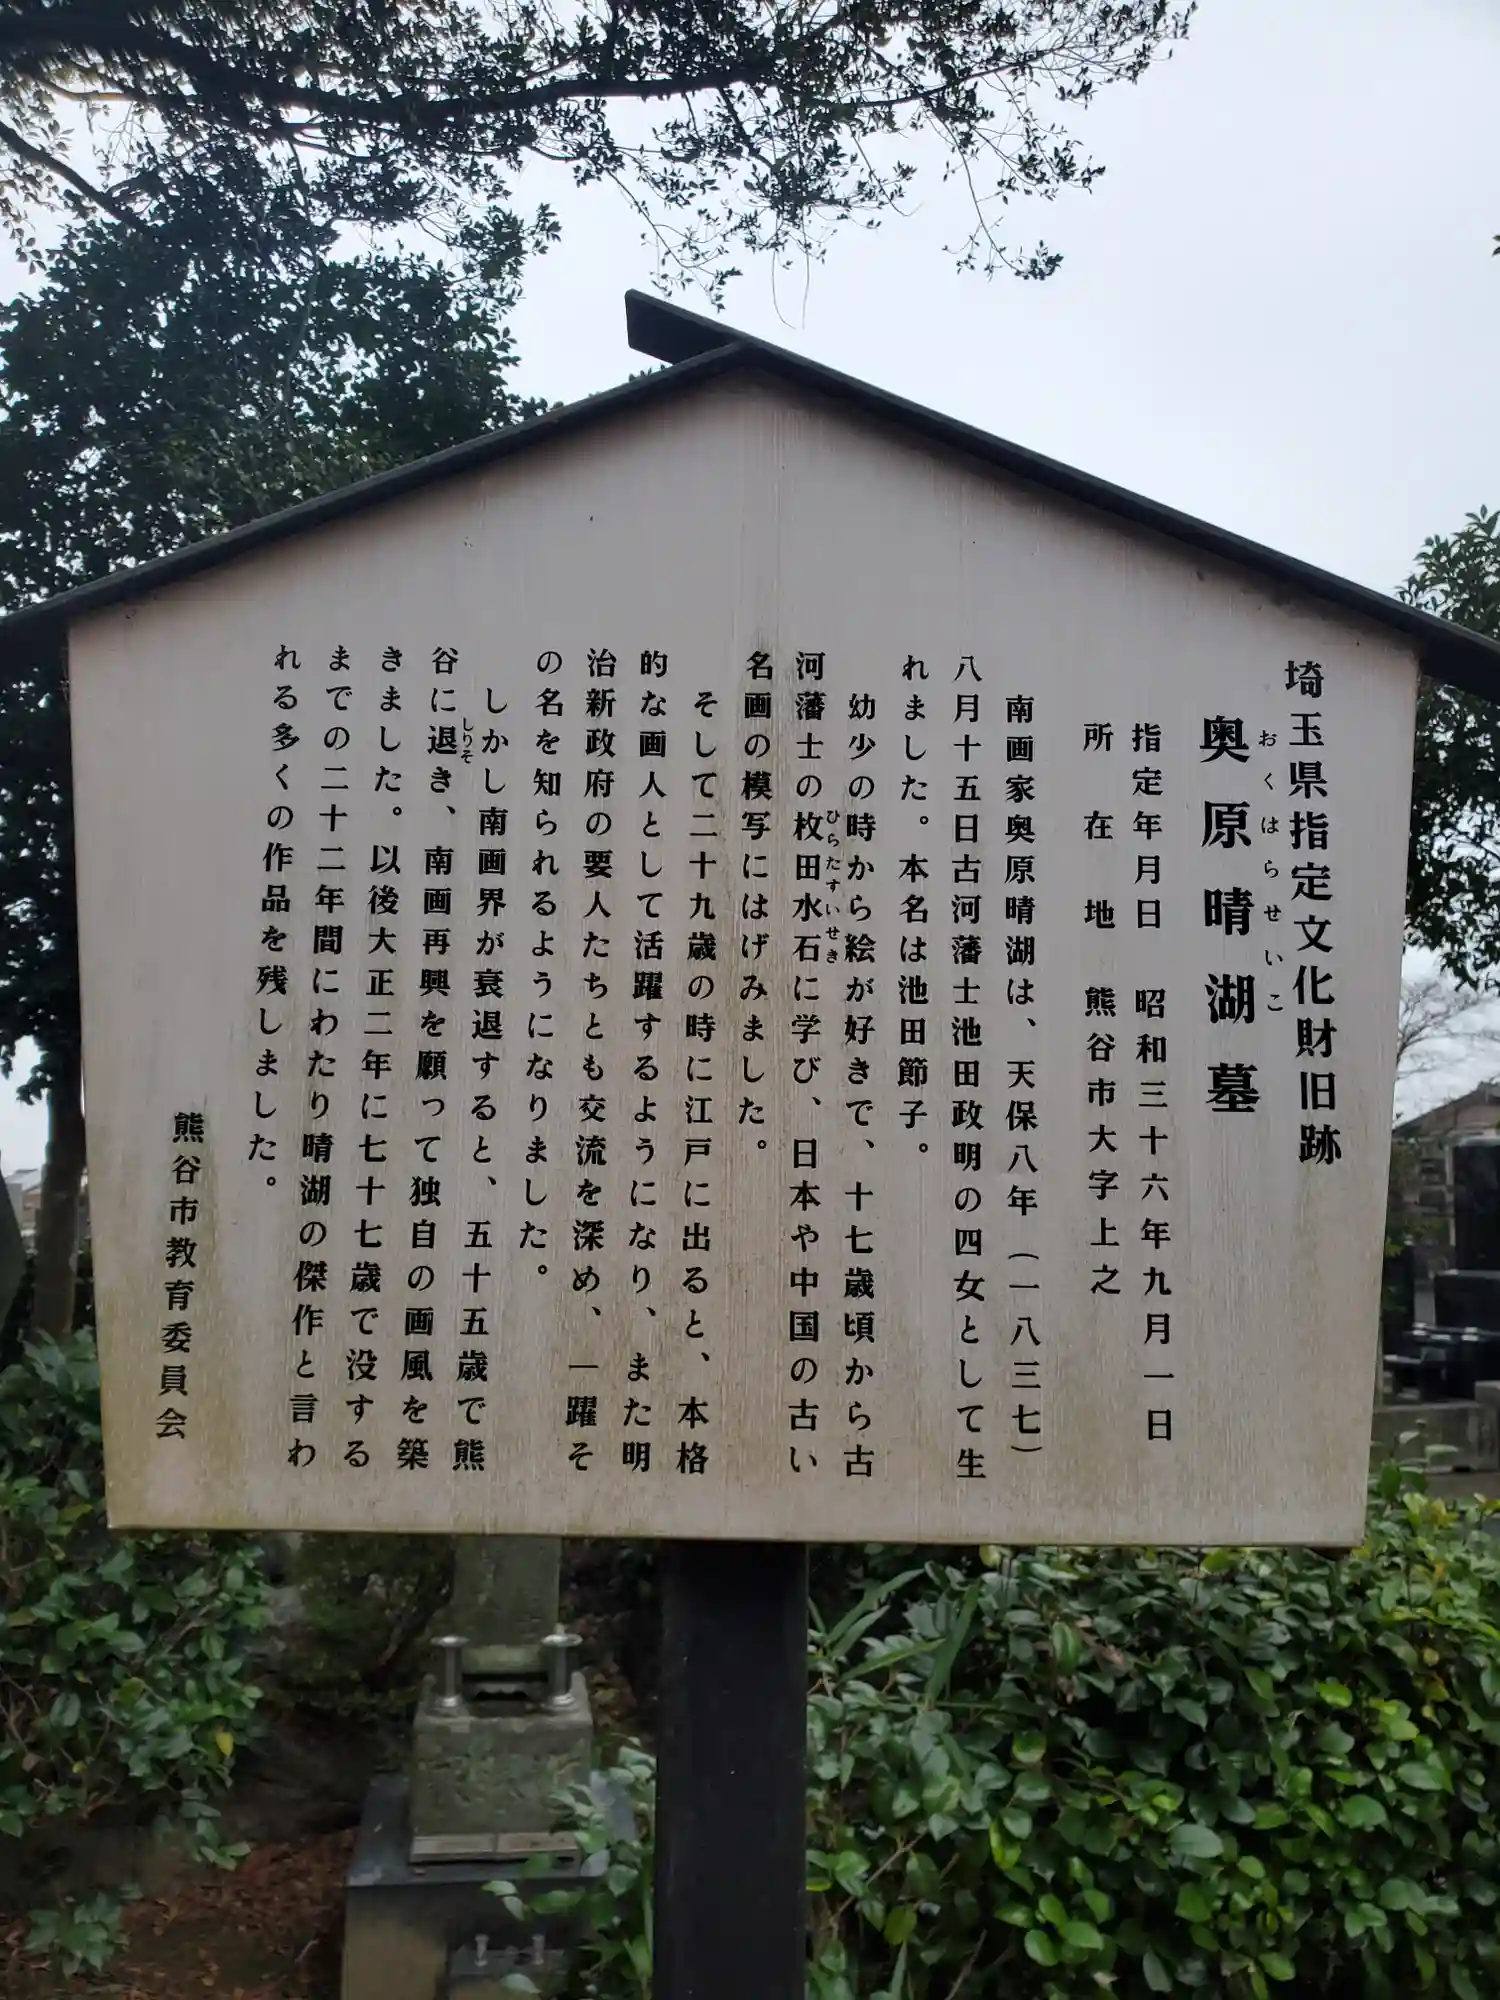 埼玉県指定文化財旧跡
おくはらせいこ
奥原晴湖墓
指定年月日 昭和三十六年九月一日
所在地 熊谷市大字上之
南画家奥原晴湖は、天保八年（一八三七）
八月十五日古河藩士池田政明の四女として生
れました。本名は池田節子。
幼少の時から絵が好きで、十七歳頃から古
ひらたすいせき
河藩士の枚田水石に学び、日本や中国の古い
名画の模写にはげみました。
そして二十九歳の時に江戸に出ると、本格
的な画人として活躍するようになり、また明
治新政府の要人たちとも交流を深め、一躍そ
の名を知られるようになりました。
しかし南画界が衰退すると、五十五歳で熊
しりそ
谷に退き、南画再興を願って独自の画風を築
きました。以後大正二年に七十七歳で没する
までの二十二年間にわたり晴湖の傑作と言わ
れる多くの作品を残しました。
熊谷市教育委員会